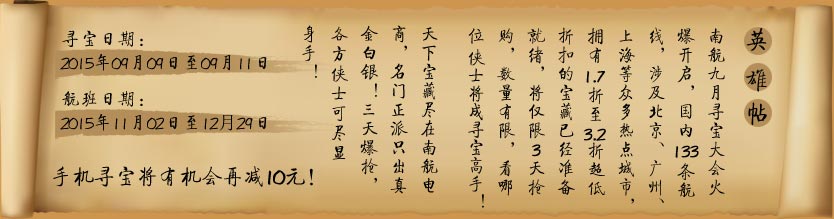 英雄帖
南航九月寻宝大会火
爆开启，国内133条航
线，涉及北京、广州、
上海等众多热点城市，
拥有1.7折至3.2折超低
折扣的宝藏已经准备
就绪，将仅限3天抢
购，数量有限，看哪
位侠士将成寻宝高手！
天下宝藏尽在南航电
商，名门正派只出真
金白银！三天爆抢，
各方侠士可尽显
身手！
寻宝日期：
2015年09月09日至09月11日
航班日期：
2015年11月02日至12月29日
手机寻宝将有机会再减10元！